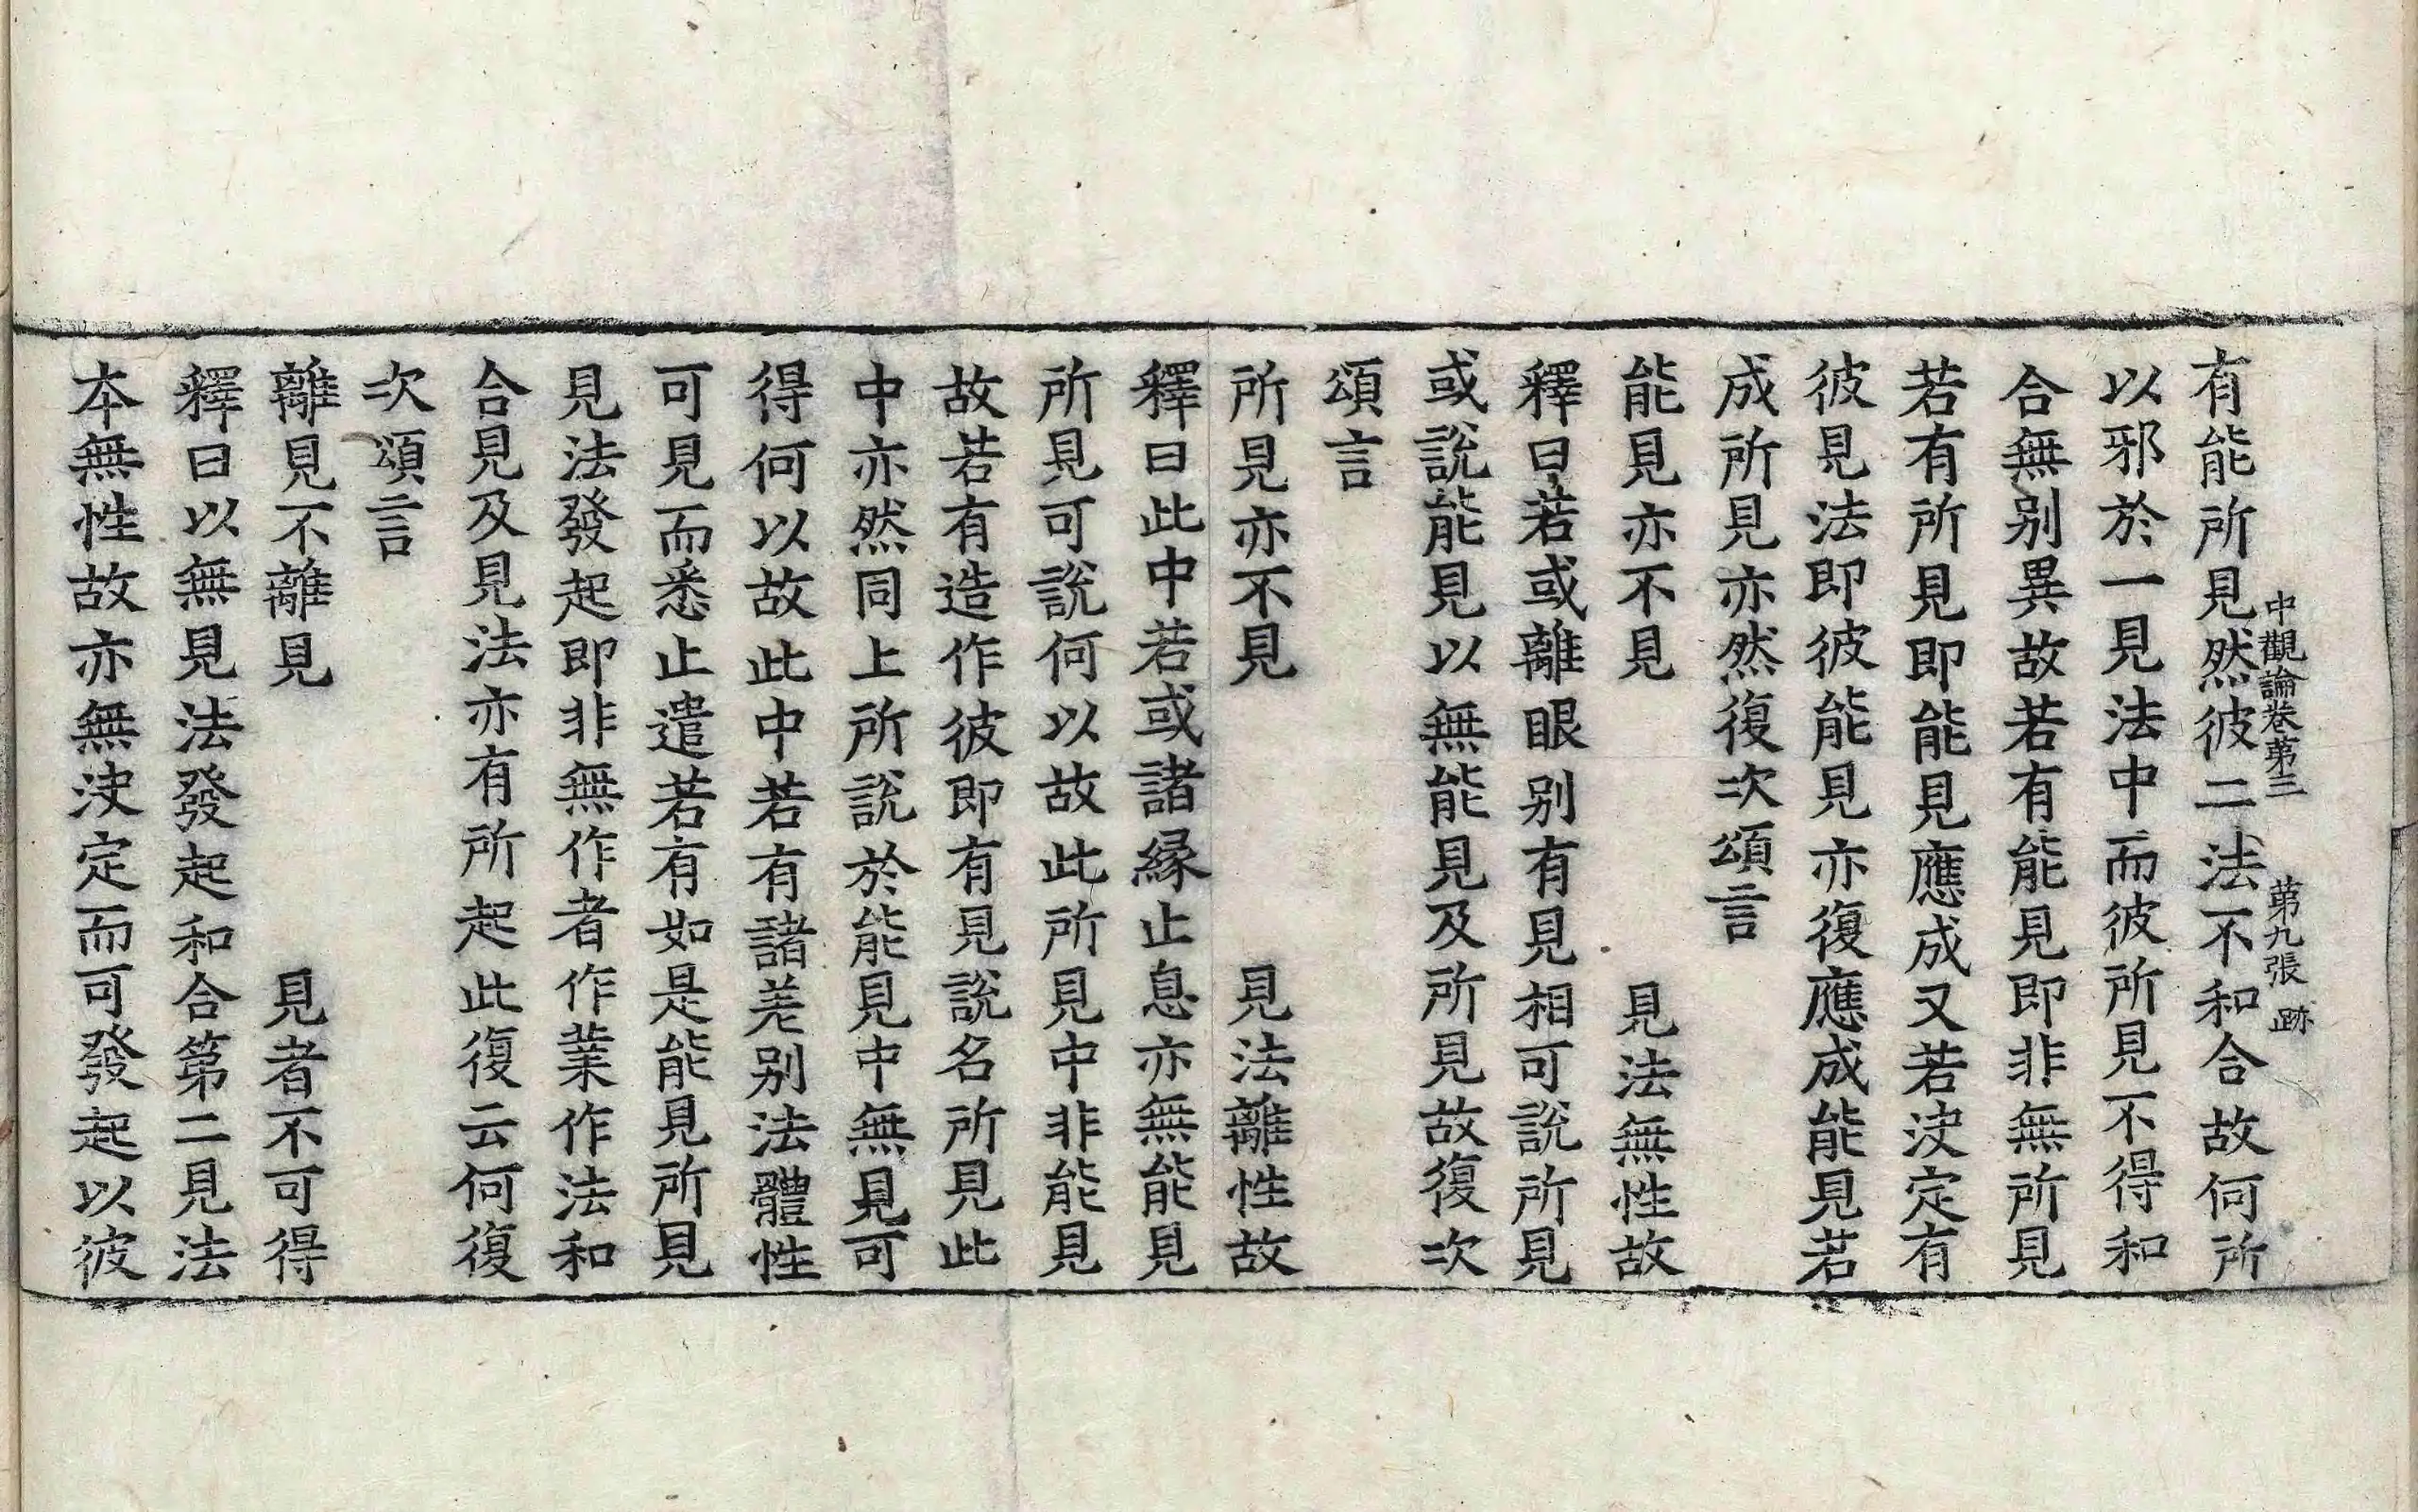 中觀論卷第三　第九張　跡
有能所見然彼二法不和合故何所
以邪於一見法中而彼所見不得和
合無别異故若有能見即非無所見
若有所見即能見應成又若决定有
彼見法即彼能見亦復應成能見若
成所見亦然復次頌言
能見亦不見　見法無性故
釋曰若或離眼别有見相可說所見
或說能見以無能見及所見故復次
頌言
所見亦不見　見法離性故
釋曰此中若或諸縁止息亦無能見
所見可說何以故此所見中非能見
故若有造作彼即有見說名所見此
中亦然同上所說於能見中無見可
得何以故此中若有諸差别法體性
可見而悉止遣若有如是能見所見
見法發起即非無作者作業作法和
合見及見法亦有所起此復云何復
次頌言
離見不離見　見者不可得
釋曰以無見法發起和合第二見法
本無性故亦無决定而可發起以彼